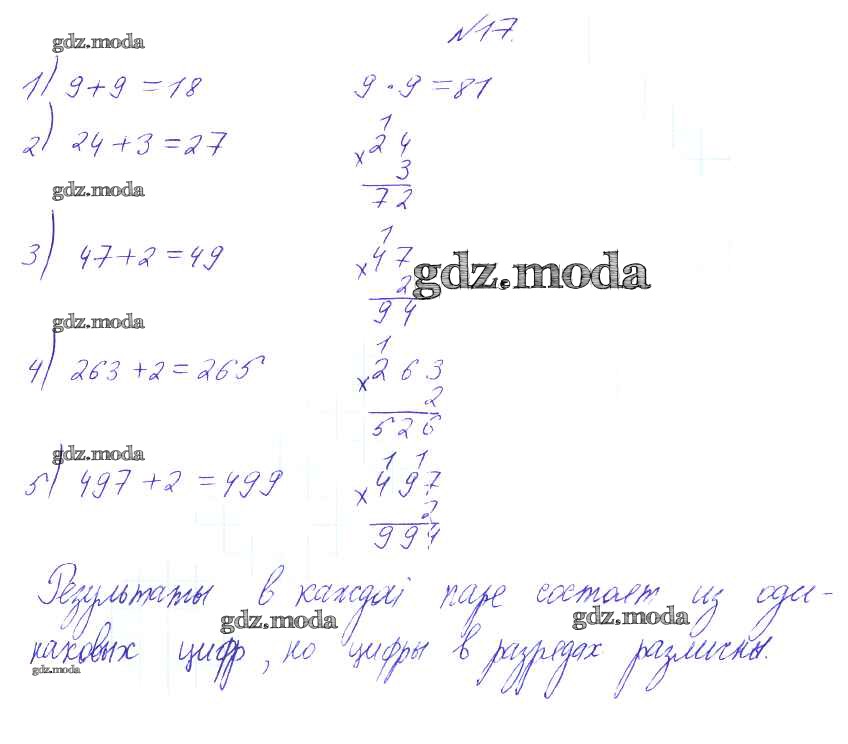 №17.
gdz.moda
1) 9+9=18 9·9=81
2) 24+3=27
1
× 24
3
72
gdz.moda
3) 47+2=49
1
× 47
2
94
gdz.moda
gdz.moda
4) 263+2=265
1
× 263
2
526
gdz.moda
5) 497+2=499
1 1
× 497
2
994
Результаты в каждой паре состоят из оди-
gdz.moda gdz.moda
наковых цифр, но цифры в разрядах различны.
gdz.moda